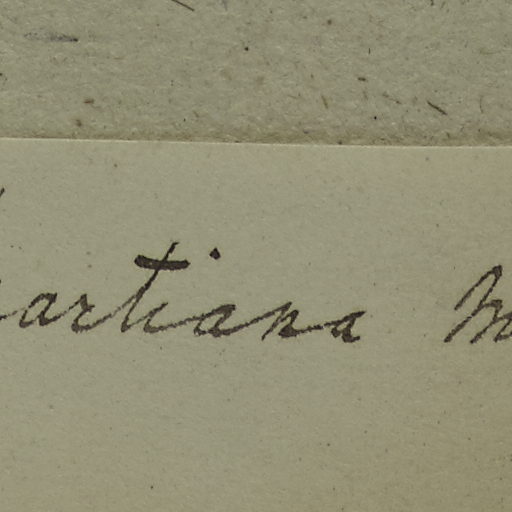 artiana M